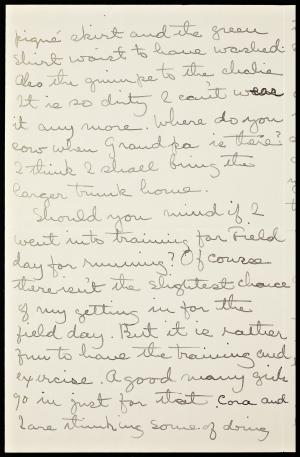 piqué skirt and the green
shirt waist to have washed.
Also the guimpe to the challie
It is so dirty I can't wear
it any more. Where do you
cow when Grandpa is there?
I think I shall bring the
larger trunk home.
Should you mind if I
went into training for Field
day for running? Of course
there isn't the slightest chance
of my getting in for the
field day. But it is rather
fun to have the training and
exercise. A good many girls
go in just for that. Cora and
I are thinking some of doing